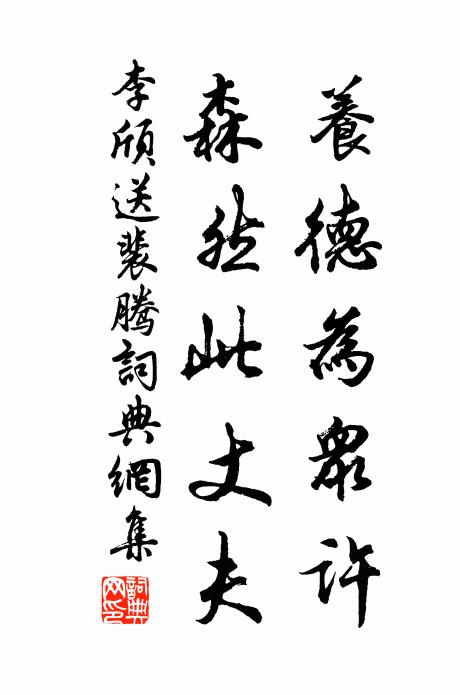 養德為眾許
森然此丈夫
李頎送裴騰詞典網集
詞典網印